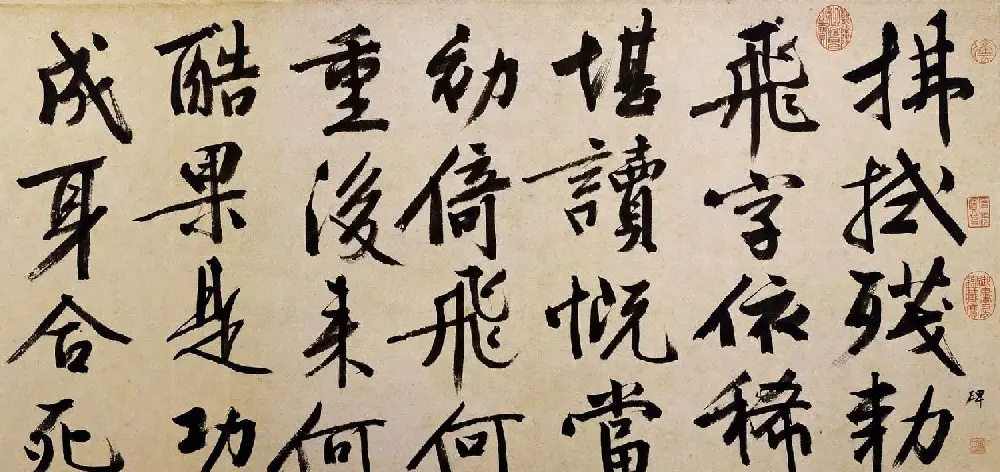 拂拭殘勅
碑
飛字依稀
堪讀慨當
初倚飛何
重後來何
酷果是功
成身合死